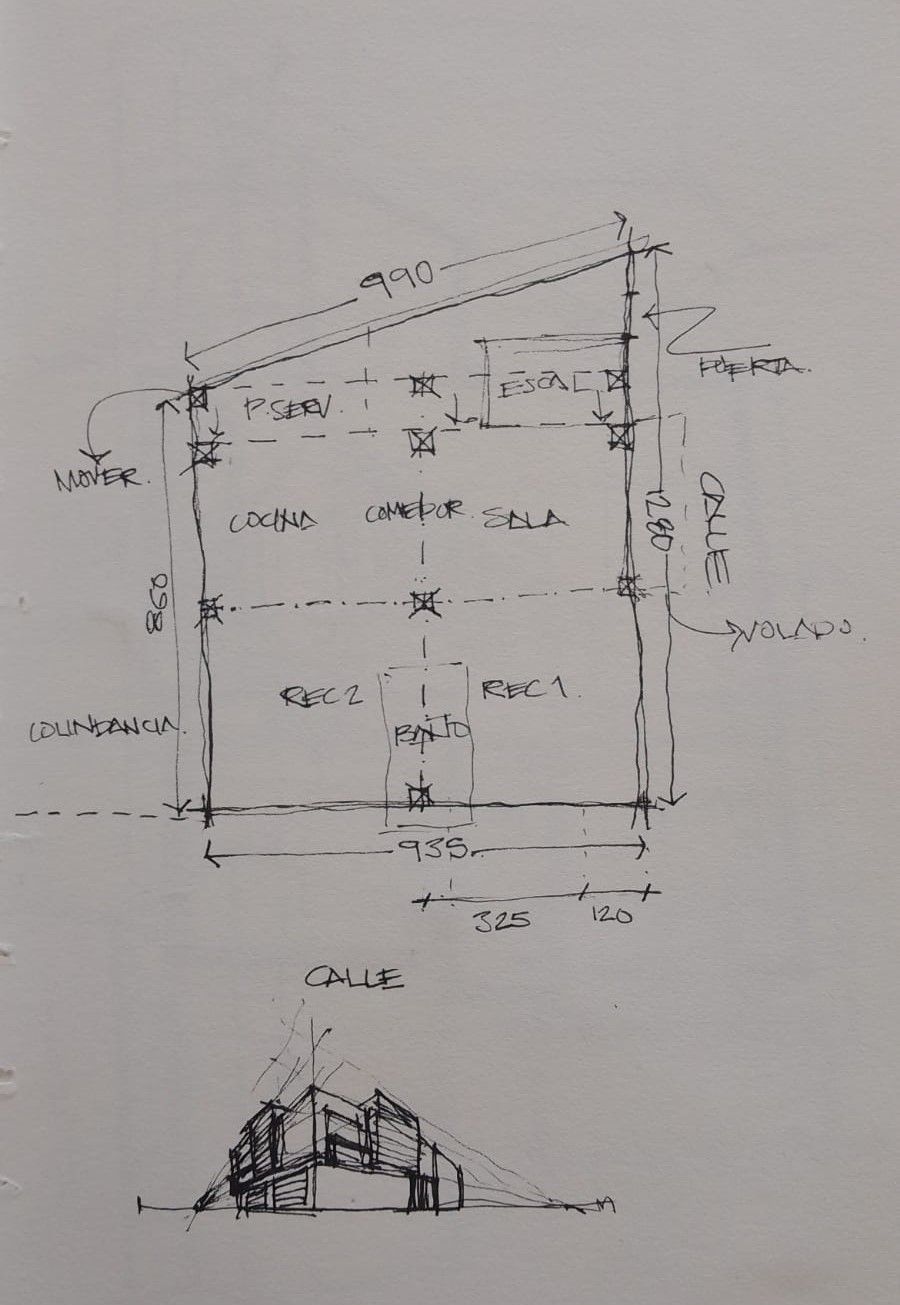 990
PUERTA.
ESCAL
P. SERV.
MOVER.
CALLE
1280
COCINA
COMEDOR.
SALA
860
VOLADO.
REC 2
REC 1.
BAÑO
COLINDANCIA.
935.
325
120
CALLE